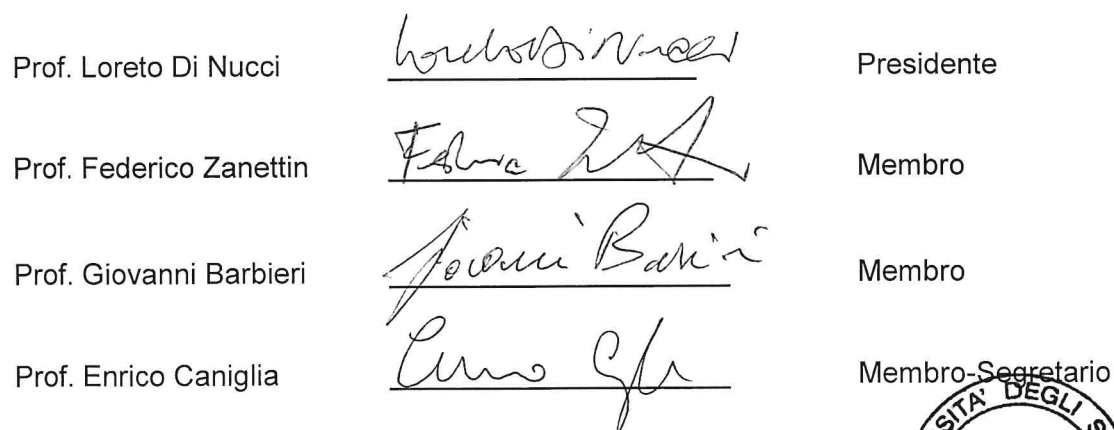 Prof. Loreto Di Nucci Loreto Di Nucci Presidente
Prof. Federico Zanettin Membro
Prof. Giovanni Barbieri Giovanni Barbieri Membro
Prof. Enrico Caniglia Membro-Segretario
SITA' DEGLI S